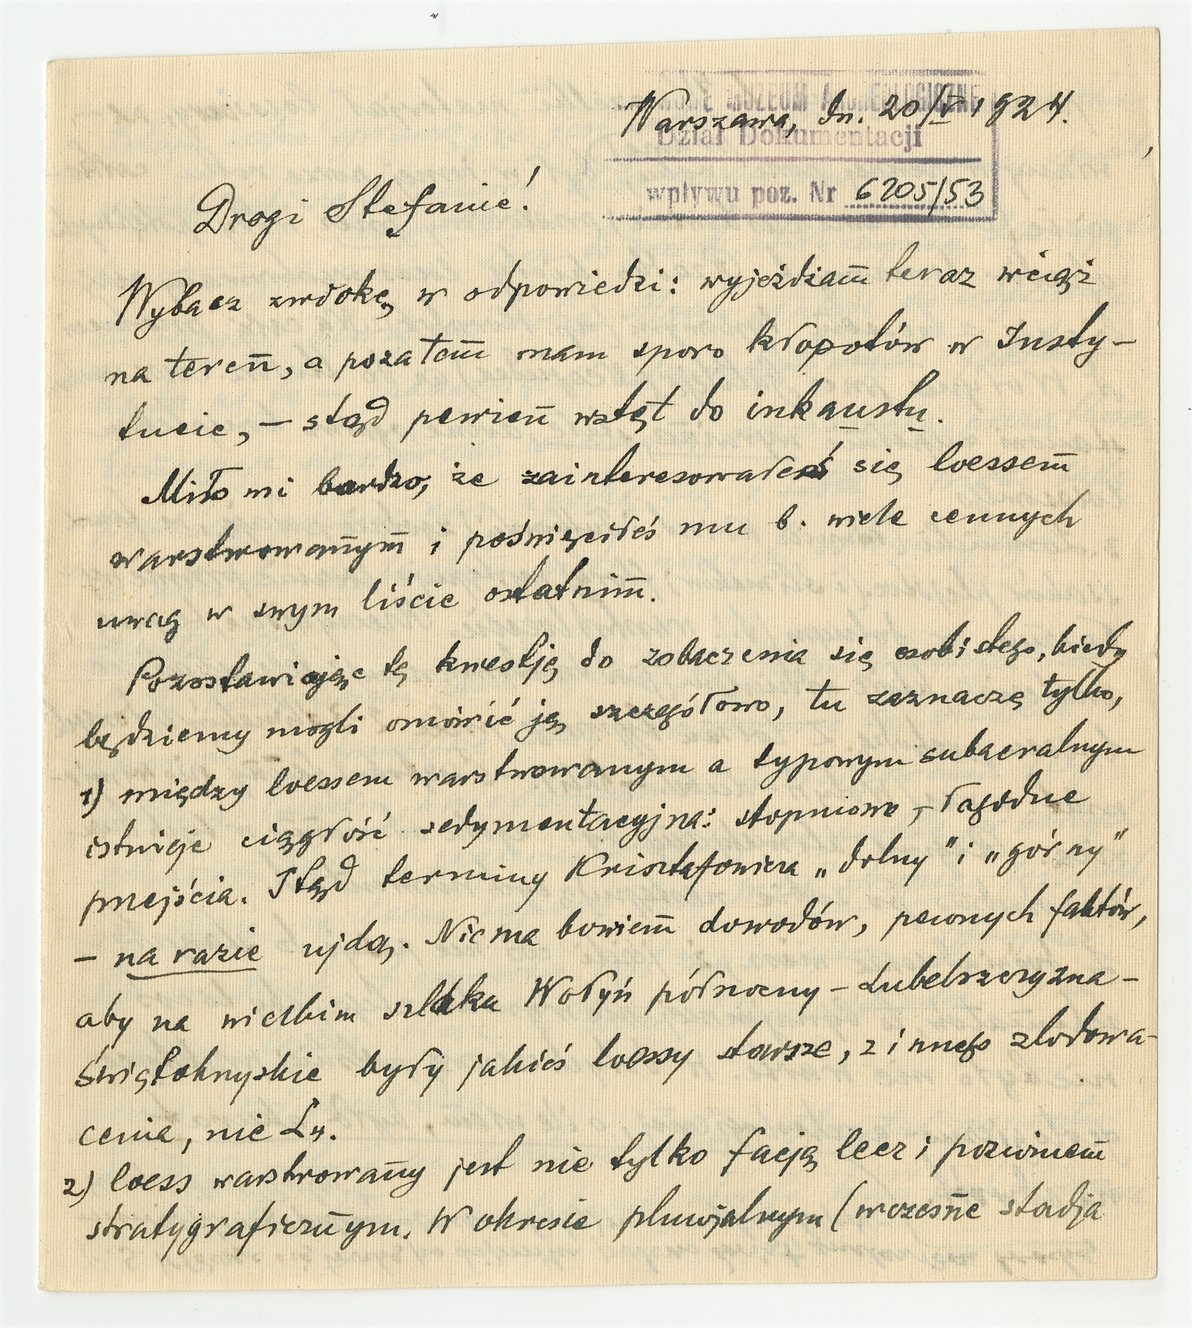 MUZEUM ARCHEOLOGICZNE
Warszawa, dn. 20/V 1924.
Dział Dokumentacji
wpływu poz. Nr 6205/53
Drogi Stefanie!
Wybacz zwłokę w odpowiedzi: wyjeżdżam teraz wciąż
na teren, a pozatem mam sporo kłopotów w Insty-
tucie, – stąd pewien wstęt do inkaustu.
Miło mi bardzo, że zainteresowałeś się loessem
warstwowanym i poświęciłeś mu b. wiele cennych
uwag w swym liście ostatnim.
Pozostawiając tę kwestję do zobaczenia się osobistego, kiedy
będziemy mogli omówić ją szczegółowo, tu zaznaczę tylko,
1) między loessem warstwowanym a typowym subaeralnym
istnieje ciągłość sedymentacyjna: stopniowe, łagodne
przejścia. Stąd terminy Krisztafowicza „dolny" i „górny"
– na razie ujdą. Niema bowiem dowodów, pewnych faktów,
aby na wielkim szlaku Wołyń północny – Lubelszczyzna –
Świętokrzyskie były jakieś loessy starsze, z innego zlodowa-
cenia, nie L4.
2) loess warstwowany jest nie tylko facją lecz i poziomem
stratygraficznym. W okresie pluwjalnym (wczesne stadja